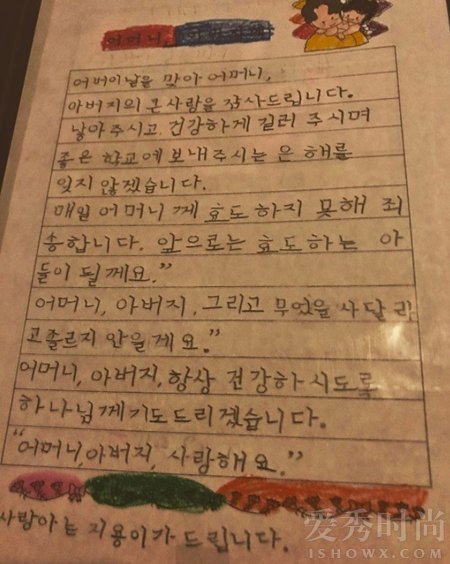 어머니,
어버이날을 맞아 어머니,
아버지의 큰사랑을 감사드립니다.
낳아주시고 건강하게 길러 주시며
좋은 학교에 보내주시는 은 혜를
잊지 않겠습니다.
매일 어머니께 효도하지 못해 죄
송합니다. 앞으로는 효도하는 아
들이 될께요.”
어머니, 아버지, 그리고 무엇을 사달라
고졸르지 안을게요.”
어머니, 아버지, 항상 건강하시도록
하나님께기도드리겠습니다.
“어머니,아버지, 사랑해요.”
사랑하는 지용이가 드립니다.
爱秀时尚
ISHOWX.COM